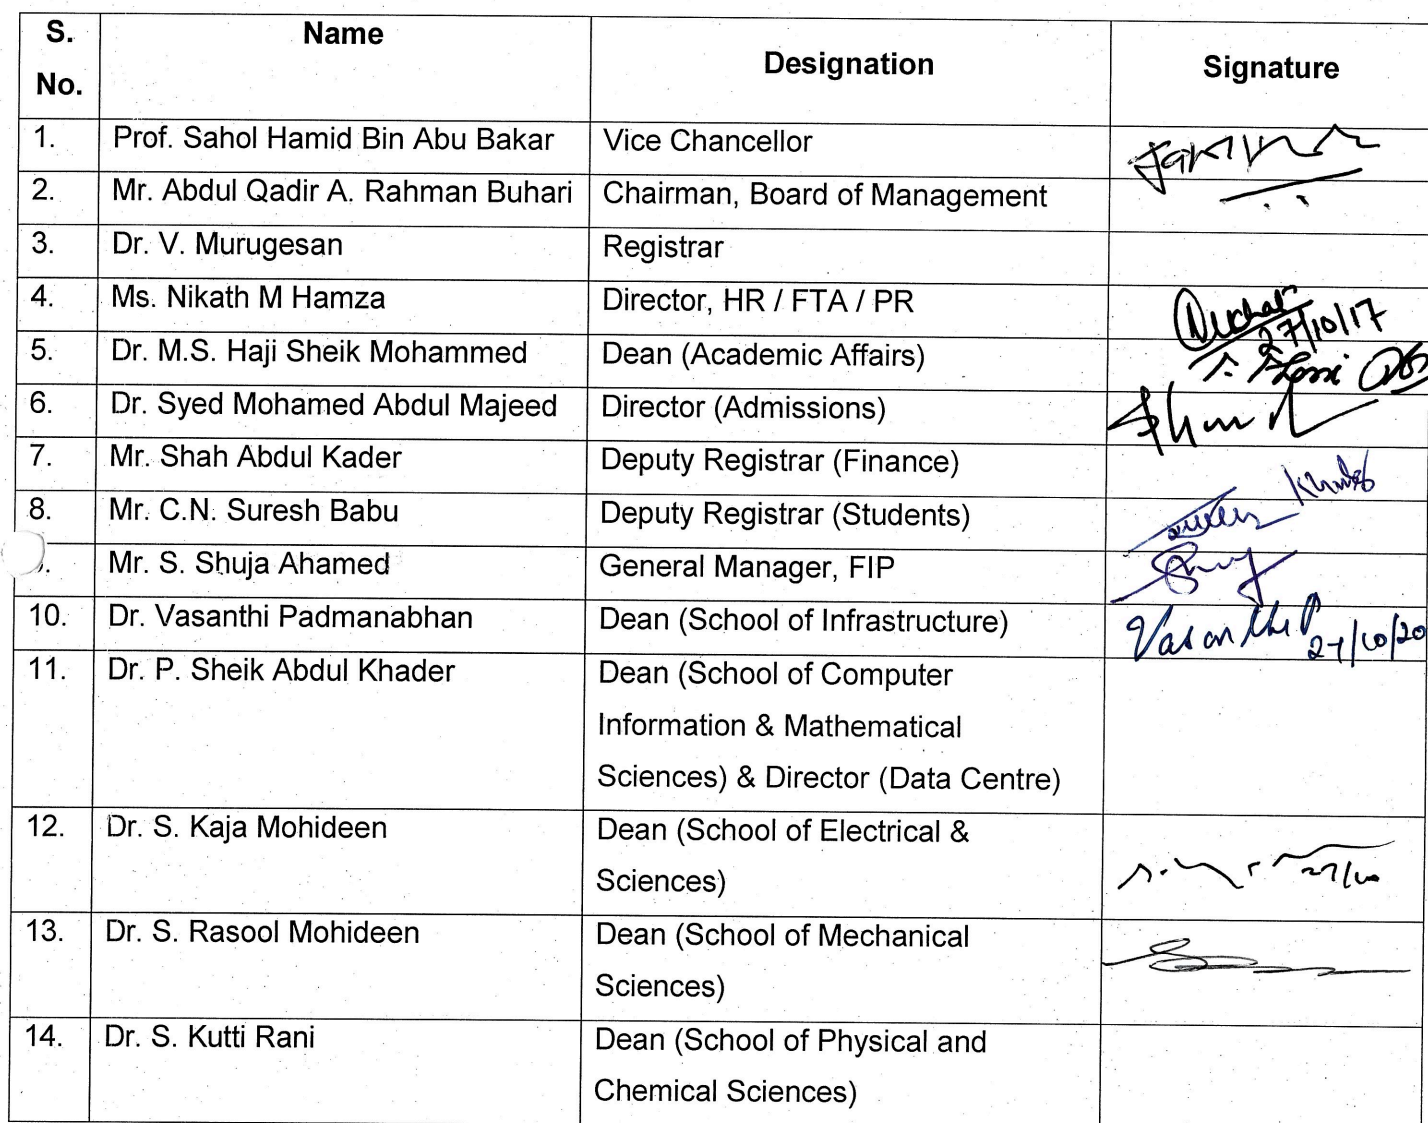 S.
No.
Name
Designation
Signature
1.
Prof. Sahol Hamid Bin Abu Bakar
Vice Chancellor
2.
Mr. Abdul Qadir A. Rahman Buhari
Chairman, Board of Management
3.
Dr. V. Murugesan
Registrar
4.
Ms. Nikath M Hamza
Director, HR / FTA / PR
27/10/17
5.
Dr. M.S. Haji Sheik Mohammed
Dean (Academic Affairs)
6.
Dr. Syed Mohamed Abdul Majeed
Director (Admissions)
7.
Mr. Shah Abdul Kader
Deputy Registrar (Finance)
8.
Mr. C.N. Suresh Babu
Deputy Registrar (Students)
Mr. S. Shuja Ahamed
General Manager, FIP
10.
Dr. Vasanthi Padmanabhan
Dean (School of Infrastructure)
27/10/20
11.
Dr. P. Sheik Abdul Khader
Dean (School of Computer
Information & Mathematical
Sciences) & Director (Data Centre)
12.
Dr. S. Kaja Mohideen
Dean (School of Electrical &
Sciences)
27/10
13.
Dr. S. Rasool Mohideen
Dean (School of Mechanical
Sciences)
14.
Dr. S. Kutti Rani
Dean (School of Physical and
Chemical Sciences)